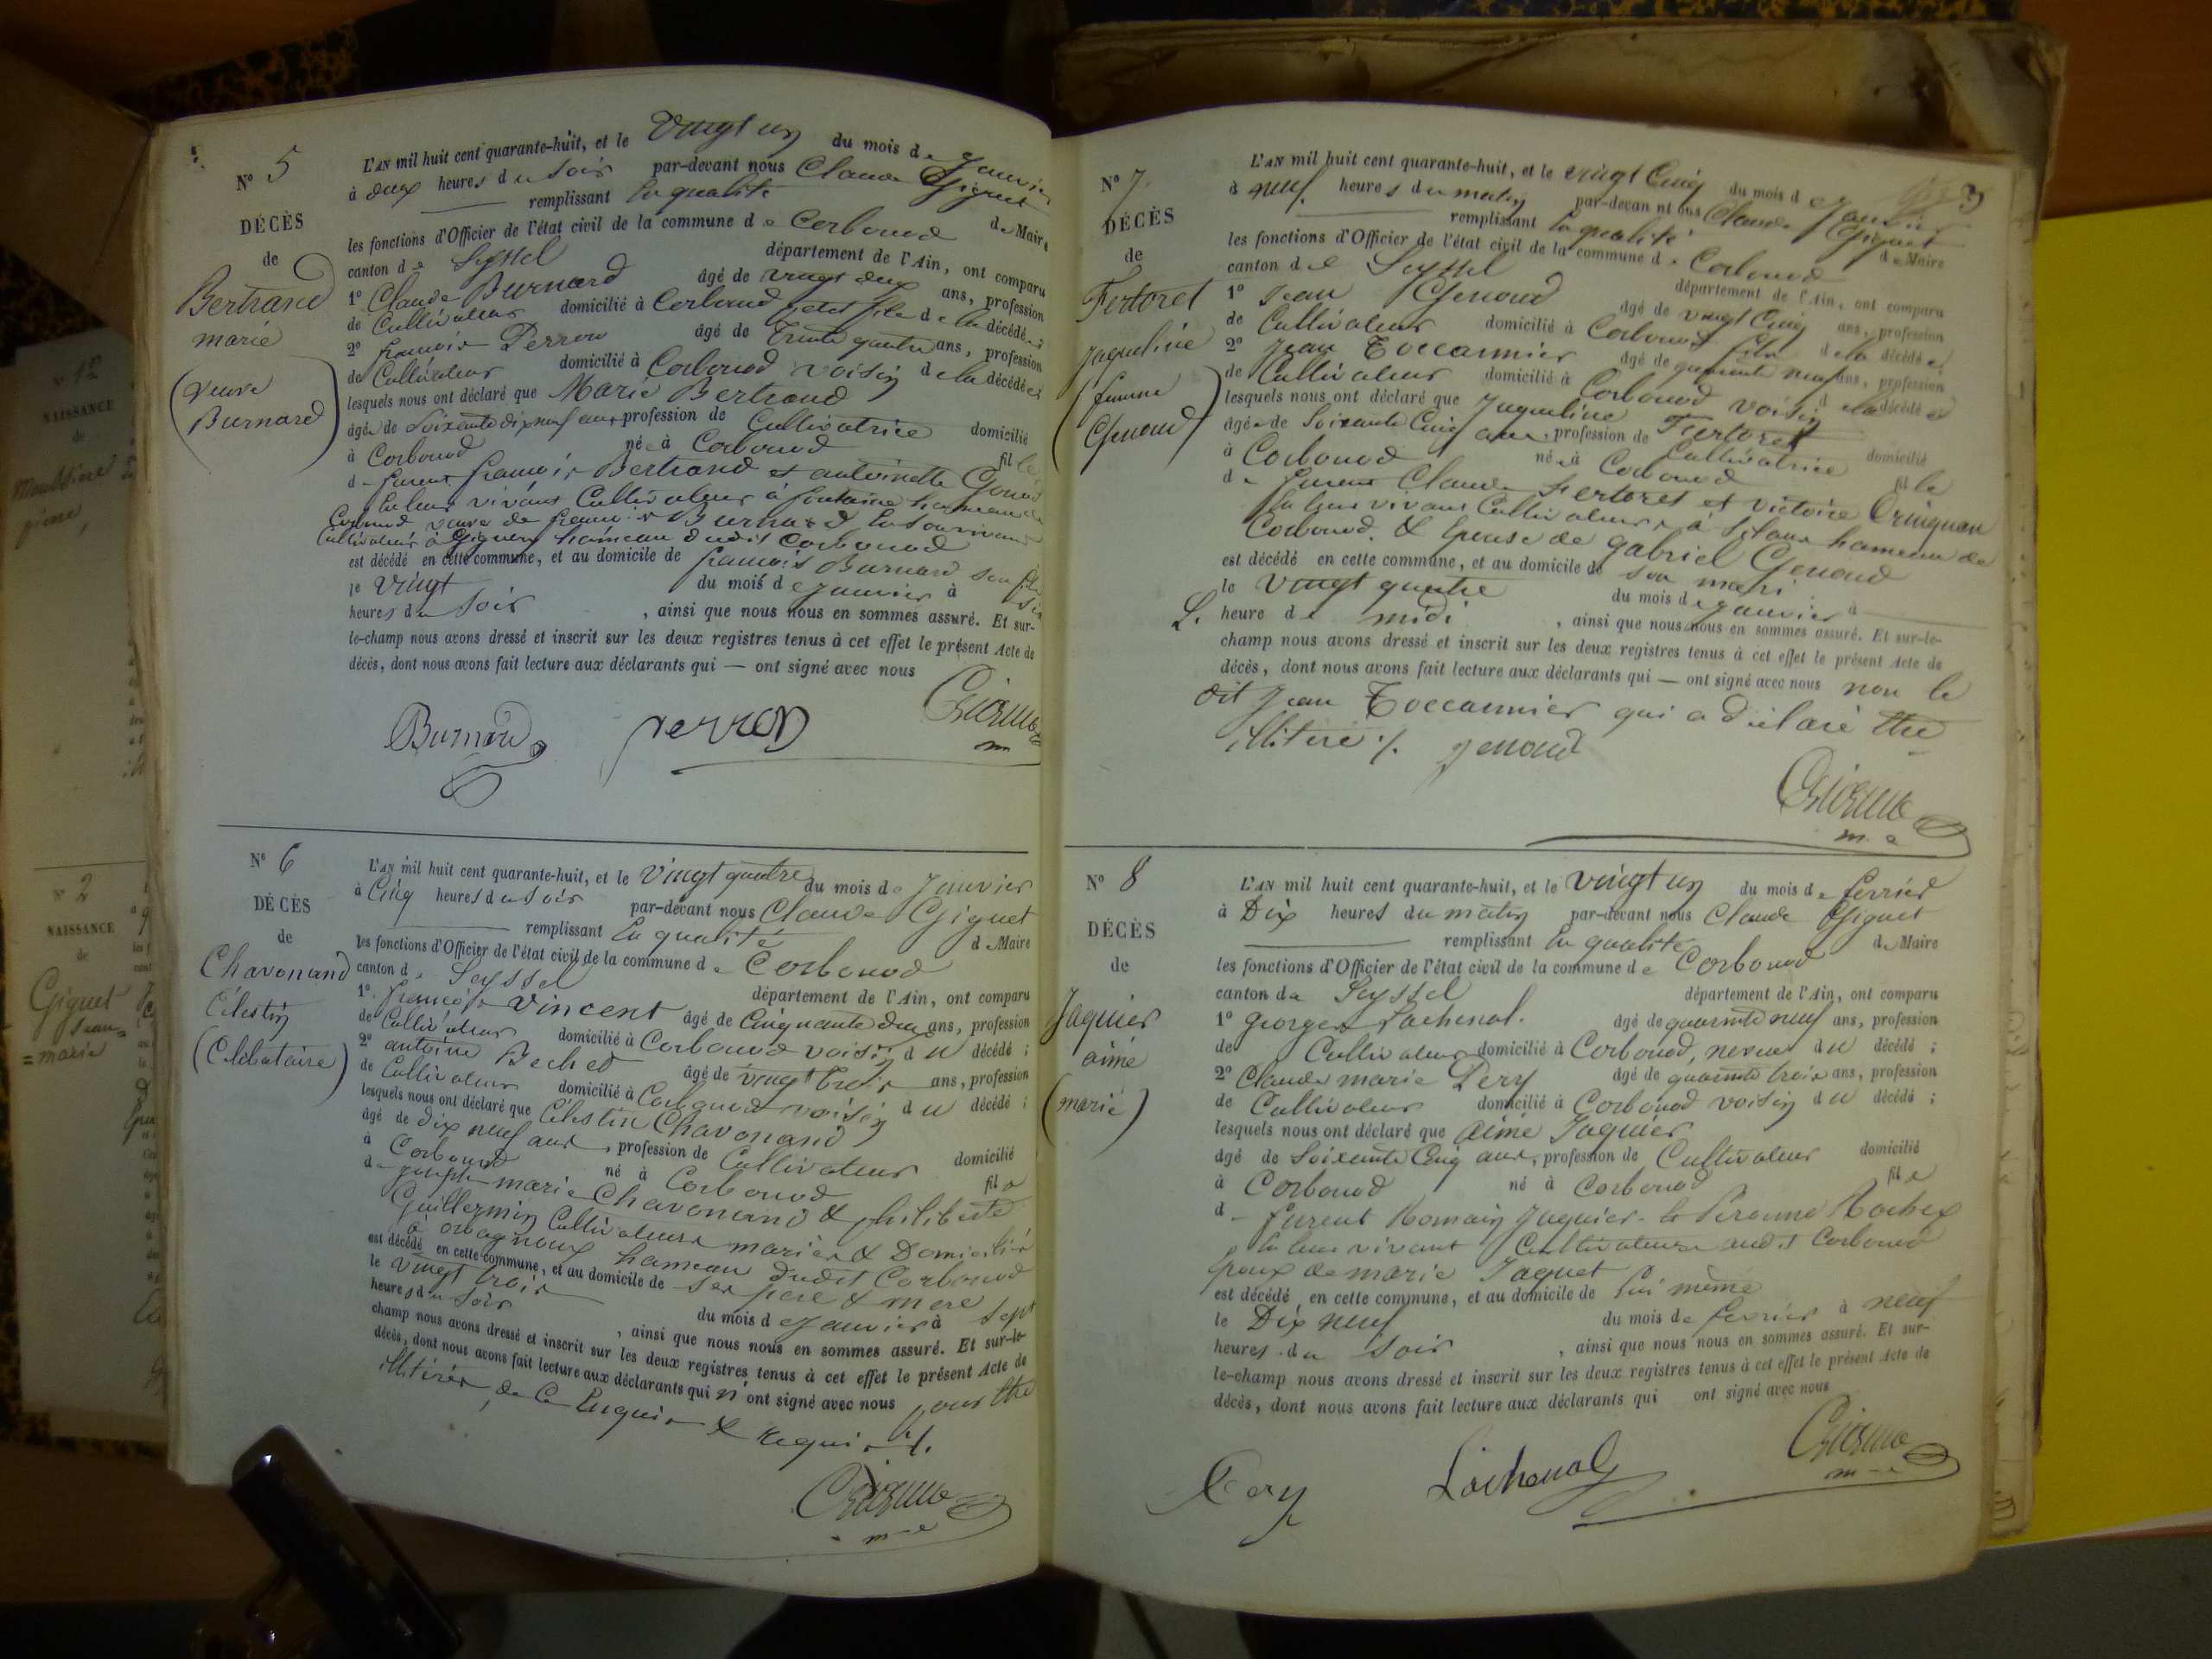 N° 5
DÉCÈS
de
Bertrand
marie
(veuve
Burnard)
L'AN mil huit cent quarante-huit, et le vingt un du mois de Janvier
à deux heures du soir par-devant nous Claude Giguet
remplissant en qualité de Maire
les fonctions d'Officier de l'état civil de la commune de Corbonod
canton de Seyssel département de l'Ain, ont comparu
1° Claude Burnard âgé de vingt deux ans, profession
de Cultivateur domicilié à Corbonod petit fils de la décédée;
2° françois Perron âgé de Trente quatre ans, profession
de Cultivateur domicilié à Corbonod voisin de la décédée;
lesquels nous ont déclaré que Marie Bertrand
âgée de Soixante dix neuf ans, profession de Cultivatrice domicilié
à Corbonod née à Corbonod fille
de furent françois Bertrand et antoinette Genoud
En leur vivant Cultivateurs à fontaine hameau de
Corbonod veuve de françois Burnard En son vivant
Cultivateur à Gignez hameau dudit Corbonod
est décédé en cette commune, et au domicile de françois Burnard son fils
le vingt du mois de janvier à six
heures du soir, ainsi que nous nous en sommes assuré. Et sur-
le-champ nous avons dressé et inscrit sur les deux registres tenus à cet effet le présent Acte de
décès, dont nous avons fait lecture aux déclarants qui — ont signé avec nous
Burnard perron Giguet
m
N° 6
DÉCÈS
de
Chavonand
Célestin
(Célibataire)
L'AN mil huit cent quarante-huit, et le Vingt quatre du mois de Janvier
à Cinq heures du soir par-devant nous Claude Giguet
remplissant en qualité de Maire
les fonctions d'Officier de l'état civil de la commune de Corbonod
canton de Seyssel département de l'Ain, ont comparu
1° françois Vincent âgé de Cinquante deux ans, profession
de Cultivateur domicilié à Corbonod voisin du décédé;
2° antoine Beched âgé de vingt trois ans, profession
de Cultivateur domicilié à Corbonod voisin du décédé;
lesquels nous ont déclaré que Célestin Chavonand
âgé de dix neuf ans, profession de Cultivateur domicilié
à Corbonod né à Corbonod fils
de joseph marie Chavonand & philiberte
Guillermin Cultivateurs mariés & Domiciliés
à orbagnoux hameau dudit Corbonod
est décédé en cette commune, et au domicile de ses père & mère
le vingt trois du mois de Janvier à sept
heures du soir, ainsi que nous nous en sommes assuré. Et sur-le-
champ nous avons dressé et inscrit sur les deux registres tenus à cet effet le présent Acte de
décès, dont nous avons fait lecture aux déclarants qui n'ont signé avec nous pour être
illitérés, de Ce Enquis & Requis ./.
Giguet
m
N° 7
DÉCÈS
de
Fertoret
Jaqueline
(femme
Genoud)
L'AN mil huit cent quarante-huit, et le vingt Cinq du mois de Janvier
à neuf heures du matin par-devan nt ous Claude Giguet
remplissant en qualité de Maire
les fonctions d'Officier de l'état civil de la commune de Corbonod
canton de Seyssel département de l'Ain, ont comparu
1° Jean Genoud âgé de vingt Cinq ans, profession
de Cultivateur domicilié à Corbonod fils de la décédée;
2° Jean Toccannier âgé de quarante neuf ans, profession
de Cultivateur domicilié à Corbonod voisin de la décédée
lesquels nous ont déclaré que Jaqueline Fertoret
âgée de Soixante Cinq ans, profession de Cultivatrice domicilié
à Corbonod née à Corbonod fille
de furent Claude Fertoret et victoire
En leur vivant Cultivateurs à Silans hameau de
Corbonod. & Epouse de gabriel Genoud
est décédé en cette commune, et au domicile de son mari
le Vingt quatre du mois de janvier à
L' heure de midi, ainsi que nous nous en sommes assuré. Et sur-le-
champ nous avons dressé et inscrit sur les deux registres tenus à cet effet le présent Acte de
décès, dont nous avons fait lecture aux déclarants qui — ont signé avec nous non le
dit Jean Toccannier qui a déclaré être
illitéré ./. genoud
Giguet
m
N° 8
DÉCÈS
de
Jaquier
aimé
(marié)
L'AN mil huit cent quarante-huit, et le vingt un du mois de fevrier
à Dix heures du matin par-devant nous Claude Giguet
remplissant en qualité de Maire
les fonctions d'Officier de l'état civil de la commune de Corbonod
canton de Seyssel département de l'Ain, ont comparu
1° georges Lachenal. âgé de quarante neuf ans, profession
de Cultivateur domicilié à Corbonod, neveu du décédé;
2° Claude marie Pery âgé de quarante trois ans, profession
de Cultivateur domicilié à Corbonod voisin du décédé;
lesquels nous ont déclaré que aimé Jaquier
âgé de Soixante Cinq ans, profession de Cultivateur domicilié
à Corbonod né à Corbonod fils
de furent Romain Jaquier & Peronne Rochex
En leur vivant Cultivateurs audit Corbonod
Epoux de marie Jaquet
est décédé en cette commune, et au domicile de lui même
le Dix neuf du mois de fevrier à neuf
heures du soir, ainsi que nous nous en sommes assuré. Et sur-
le-champ nous avons dressé et inscrit sur les deux registres tenus à cet effet le présent Acte de
décès, dont nous avons fait lecture aux déclarants qui ont signé avec nous
Pery Lachenal Giguet
m
N° 12
NAISSANCE
de
N° 2
NAISSANCE
de
Giguet
Jean=
=marie